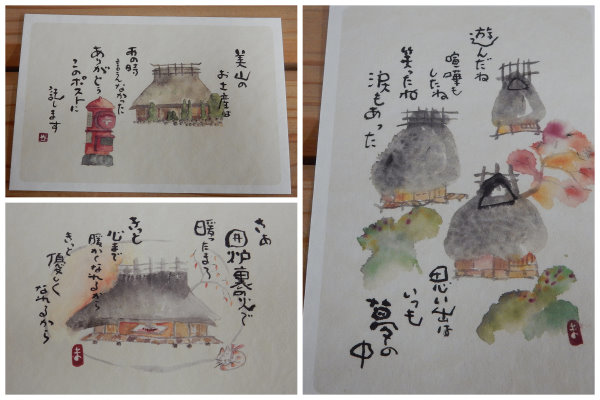 美山の
お土産は
あの時
ありがとう
このポストに
託します
さあ
囲炉裏の火で
暖ったまろ
きっと
心まで
暖かくなれるから
きっと
優しく
なれるから
遊んだね
喧嘩も
したね
笑ったね
涙もあった
思い出は
いつも
夢の
中